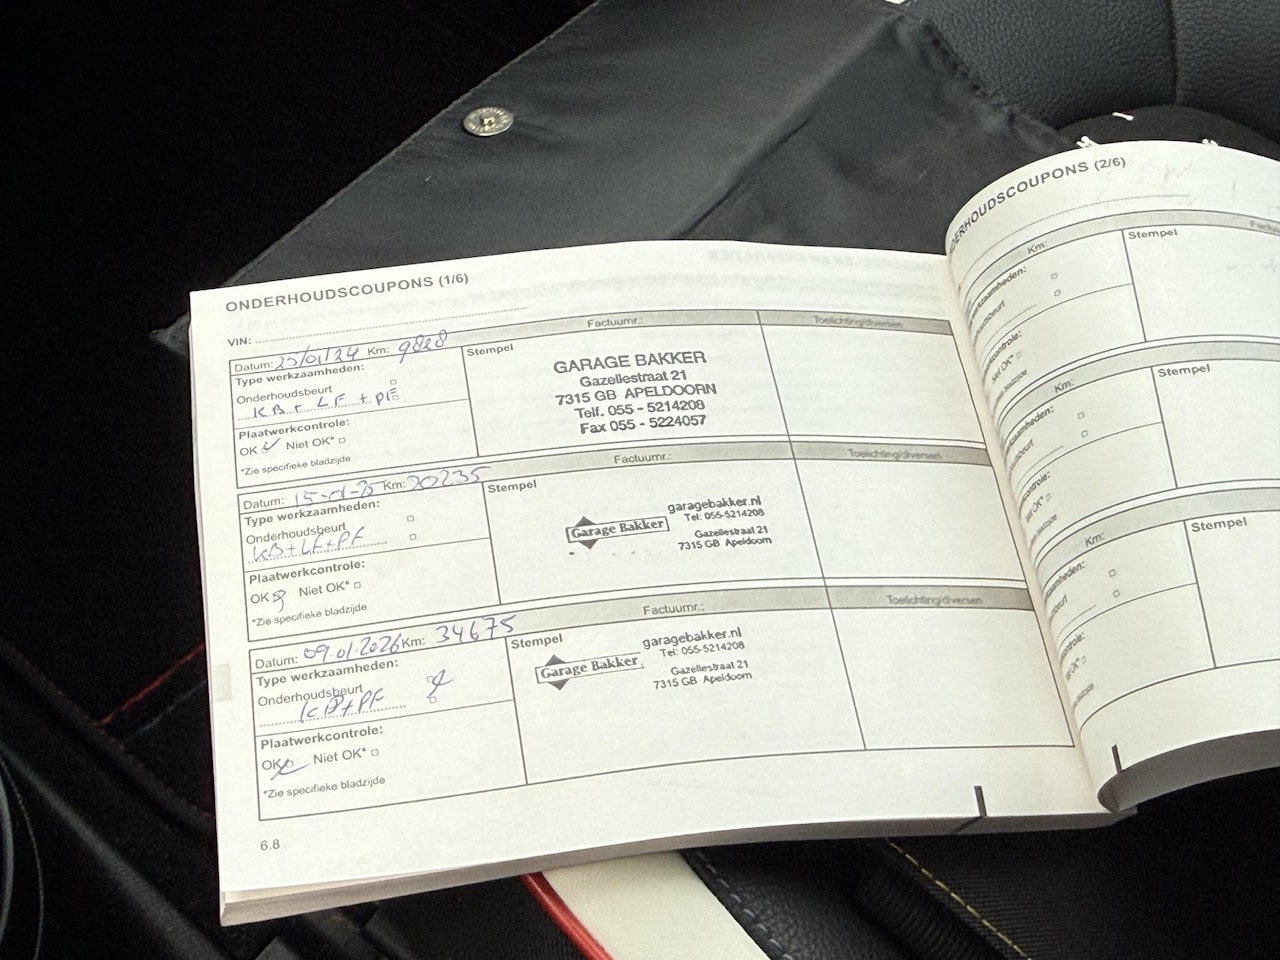 ONDERHOUDSCOUPONS (1/6)
VIN:
Factuurnr.: Toelichting/diversen
Datum: 25/01/24 Km: 9828
Type werkzaamheden:
Onderhoudsbeurt
KB + LF + PF
Plaatwerkcontrole:
OK Niet OK*
*Zie specifieke bladzijde
Stempel
GARAGE BAKKER
Gazellestraat 21
7315 GB APELDOORN
Telf. 055 - 5214208
Fax 055 - 5224057
Factuurnr.: Toelichting/diversen
Datum: 15-01-25 Km: 20235
Type werkzaamheden:
Onderhoudsbeurt
KB+LF+PF
Plaatwerkcontrole:
OK Niet OK*
*Zie specifieke bladzijde
Stempel
Garage Bakker
garagebakker.nl
Tel: 055-5214208
Gazellestraat 21
7315 GB Apeldoorn
Factuurnr.: Toelichting/diversen
Datum: 09.01.2026 Km: 34675
Type werkzaamheden:
Onderhoudsbeurt
KB+PF
Plaatwerkcontrole:
OK Niet OK*
*Zie specifieke bladzijde
Stempel
Garage Bakker
garagebakker.nl
Tel: 055-5214208
Gazellestraat 21
7315 GB Apeldoorn
6.8
(2/6)
Km:
Stempel
Niet OK*
Km:
Stempel
Niet OK*
Km:
Stempel